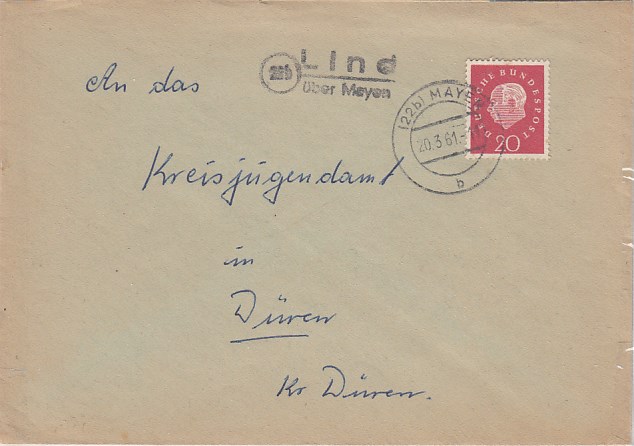 22b
Lind
über Mayen
(22b) MAYEN
20.3.61.
b
DEUTSCHE BUNDESPOST
20
An das
Kreisjugendamt
in
Düren
Kr Düren.